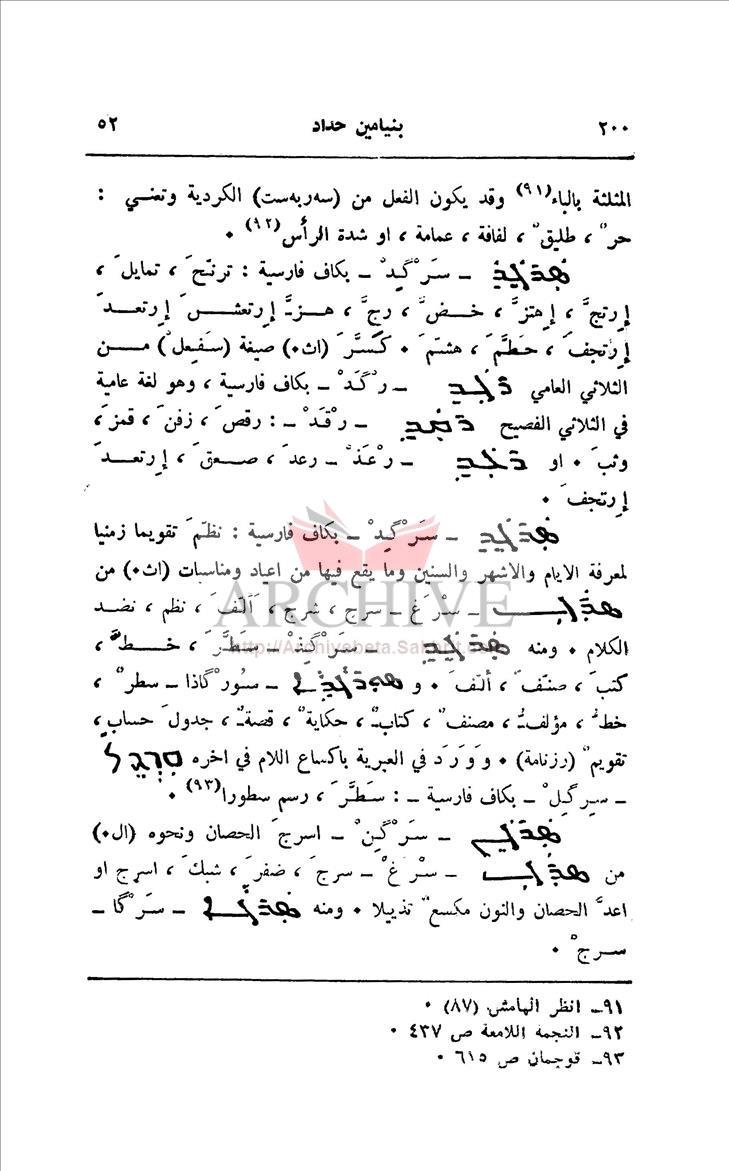 ٢٠٠ بنيامين حداد ٥٢
المثلثة بالباء(٩١) وقد يكون الفعل من (سهربهست) الكردية وتعني :
حر ، طليق ، لفافة ، عمامة ، او شدة الرأس(٩٢) ٠
ܣܪܓܕ ــ سَرْگِدْ ــ بكاف فارسية : ترنّحَ ، تمايلَ ،
إرتجَّ ، إهتزَّ ، خضَّ ، رجَّ ، هزَّ إرتعشَ إرتعدَ
إرتجفَ ، حَطَّمَ ، هشّمَ ٠ كَسَّرَ (اث٠) صيغة (سَفعِل) من
الثلاثي العامي ܪܓܕ ــ رْگَدْ ــ بكاف فارسية ، وهو لغة عامية
في الثلاثي الفصيح ܪܩܕ ــ رْقَدْ ــ : رقص ، زفن ، قمز ،
وثبَ ٠ او ܪܥܕ ــ رْعَدْ ــ رعدَ ، صعقَ ، إرتعدَ
إرتجفَ ٠
ܣܪܓܕ ــ سَرْگِدْ ــ بكاف فارسية : نظّمَ تقويما زمنيا
لمعرفة الايام والاشهر والسنين وما يقع فيها من اعياد ومناسبات (اث٠) من
ܣܪܓ ــ سْرَغ ــ سرج ، شرج ، اَلّفَ ، نظم ، نضد
الكلام ٠ ومنه ܣܪܓܕ ــ سَرْگِدْ ــ سَطَّرَ ، خطَّ ،
كتبَ ، صنّفَ ، ألّفَ ٠ و ܣܘܪܓܕܐ ــ سُورْگاذا ــ سطرٌ ،
خطٌ ، مؤلفٌ ، مصنفٌ ، كتابٌ ، حكايةٌ ، قصةٌ ، جدول حساب ،
تقويمٌ (رزنامة) ٠ وَوَرَدَ في العبرية باكساع اللام في اخره סרגל
ــ سيرگيل ــ بكاف فارسية ــ : سَطَّرَ ، رسم سطورا(٩٣) ٠
ܣܪܓܢ ــ سَرْگِنْ ــ اسرجَ الحصان ونحوه (ال٠)
من ܣܪܓ ــ سْرَغْ ــ سرجَ ، ضفرَ ، شبكَ ، اسرج او
اعدَّ الحصان والنون مكسعٌ تذييلا ٠ ومنه ܣܪܓܐ ــ سَرْگا ــ
سرجْ ٠
٩١ــ انظر الهامش (٨٧) ٠
٩٢ــ النجمة اللامعة ص ٤٣٧ ٠
٩٣ــ قوجمان ص ٦١٥ ٠
ARCHIVE